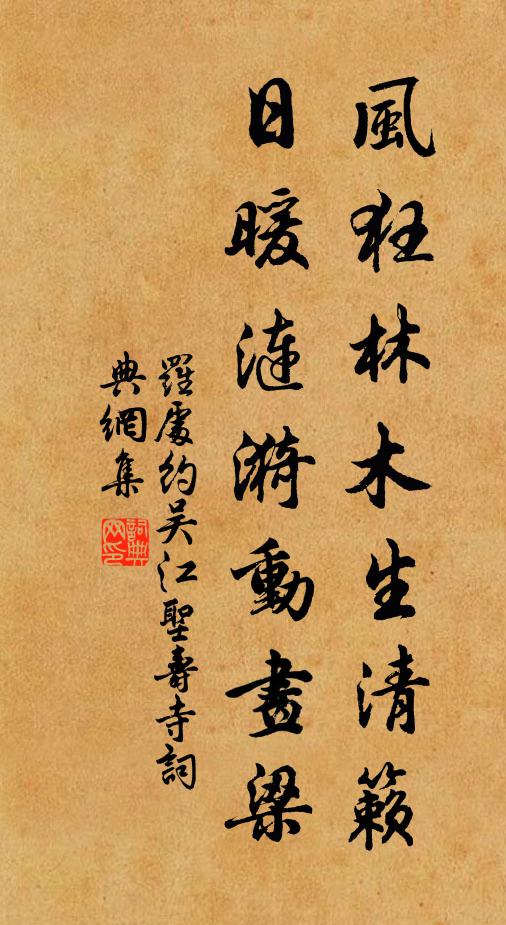 風狂林木生清籟
日暖漣漪動畫梁
羅處約吳江聖壽寺詞
典網集
詞典网印